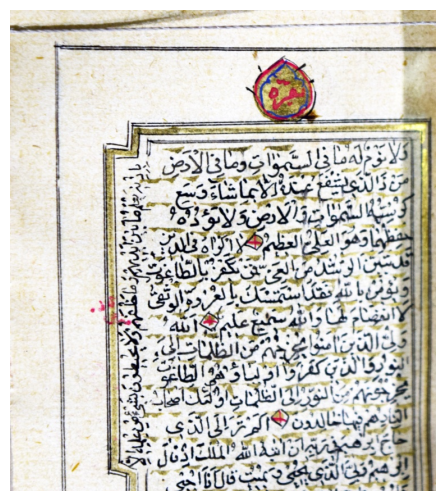 ولا نوم له ما في السموات وما في الارض
من ذا الذي يشفع عنده الا بما شاء وسع
كرسيه السموات والارض ولا يؤده
حفظهما وهو العلي العظيم لا اكراه في الدين
قد تبين الرشد من الغي فمن يكفر بالطاغوت
ويؤمن بالله فقد استمسك بالعروة الوثقى
لا انفصام لها والله سميع عليم الله
ولي الذين امنوا يخرجهم من الظلمات الى
النور والذين كفروا اولياؤهم الطاغوت
يخرجونهم من النور الى الظلمات اولئك اصحاب
النار هم فيها خالدون الم تر الى الذي
حاج ابرهيم في ربه ان اتاه الله الملك اذ قال
ابرهيم ربي الذي يحيي ويميت قال انا احيي
باذنه يعلم ما بين ايديهم وما خلفهم ولا يحيطون بشيء من علمه الا